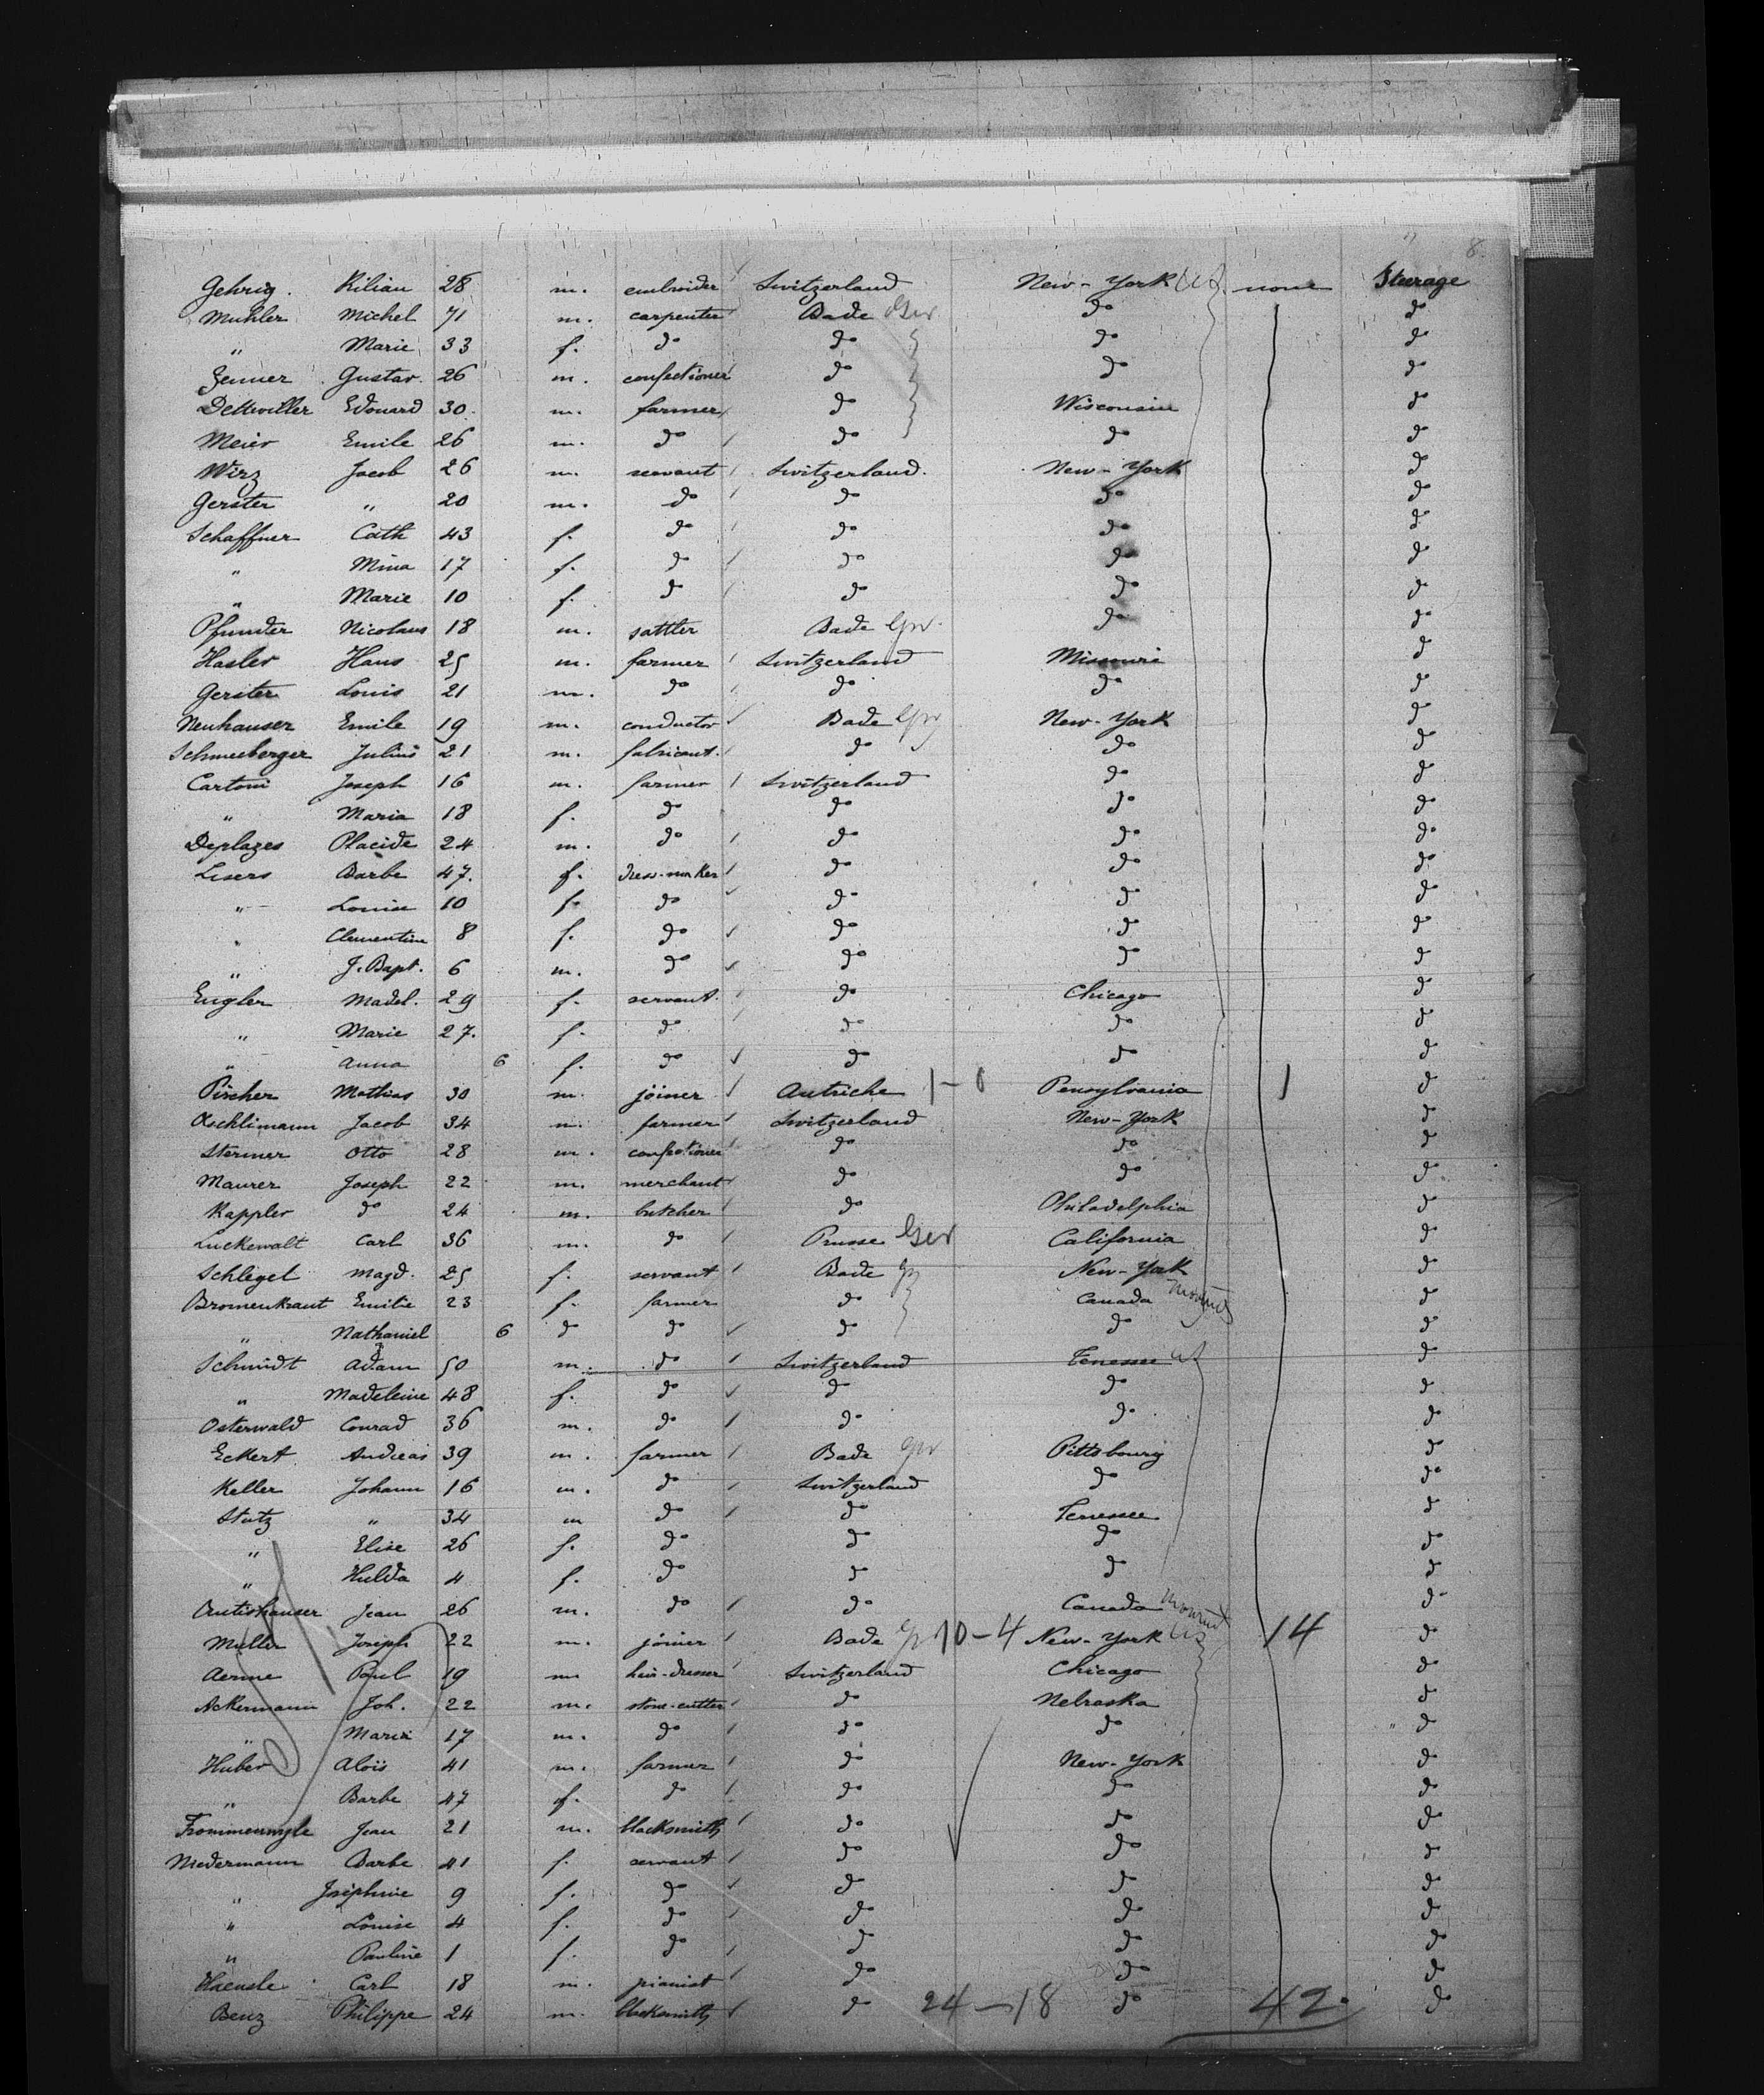 8.
Gehrig. Kilian 28 m. embroider Switzerland New-York US. none Steerage
Muhler Michel 71 m. carpenter Bade Ger do do
" Marie 33 f. do do do do
Zenner Gustav. 26 m. confectioner do do do
Dettwiller Edouard 30. m. farmer do Wisconsin do
Meier Emile 26 m. do do do do
Wirz Jacob 26 m. servant Switzerland. New-York do
Gerster " 20 m. do do do do
Schaffner Cath 43 f. do do do do
" Mina 17 f. do do do do
" Marie 10 f. do do do do
Pfunder Nicolaus 18 m. sattler Bade Ger do do
Hasler Hans 25 m. farmer Switzerland Missouri do
Gerster Louis 21 m. do do do do
Neuhauser Emile 19 m. conductor Bade Ger New-York do
Schneeberger Julius 21 m. fabricant. do do do
Cartoni Joseph 16 m. farmer Switzerland do do
" Maria 18 f. do do do do
Deplazes Placide 24 m. do do do do
Lisers Barbe 47. f. dress-maker do do do
" Louise 10 f. do do do do
" Clementine 8 f. do do do do
" J. Bapt. 6 m. do do do do
Engler Madel. 29 f. servant. do Chicago do
" Marie 27. f. do do do do
" Anna 6 f. do do do do
Pircher Mathias 30 m. joiner Autriche 1-0 Pensylvania 1 do
Aschlimann Jacob 34 m. farmer Switzerland New-York do
Sterner Otto 28 m. confectioner do do do
Maurer Joseph 22 m. merchant do do do
Kappler do 24 m. butcher do Philadelphia do
Luckewalt Carl 36 m. do Prusse Ger California do
Schlegel Magd. 25 f. servant Bade Ger New-York do
Bromenkraut Emilie 23 f. farmer do Canada do
" Nathaniel 6 do do do do do
Schmidt Adam 50 m. do Switzerland Tenessee US do
" Madeleine 48 f. do do do do
Osterwald Conrad 36 m. do do do do
Eckert Andreas 39 m. farmer Bade Ger Pittsbourg do
Keller Johann 16 m. do Switzerland do do
Stutz " 34 m do do Tenessee do
" Elise 26 f. do do do do
" Hulda 4 f. do do do do
Autishauser Jean 26 m. do do Canada do
Muller Joseph 22 m. joiner Bade Ger 10-4 New-York US 14 do
Aenne Paul 19 m. hair-dresser Switzerland Chicago do
Ackermann Joh. 22 m. stone-cutter do Nebraska do
" Maria 17 m. do do do do
Huber Aloïs 41 m. farmer do New-York do
" Barbe 47 f. do do do do
Jean 21 m. blacksmith do do do
Niedermann Barbe 41 f. servant do do do
" Joséphine 9 f. do do do do
" Louise 4 f. do do do do
" Pauline 1 f. do do do do
Haensle Carl 18 m. pianist do do do
Benz Philippe 24 m. blacksmith do 24-18 do 42 do